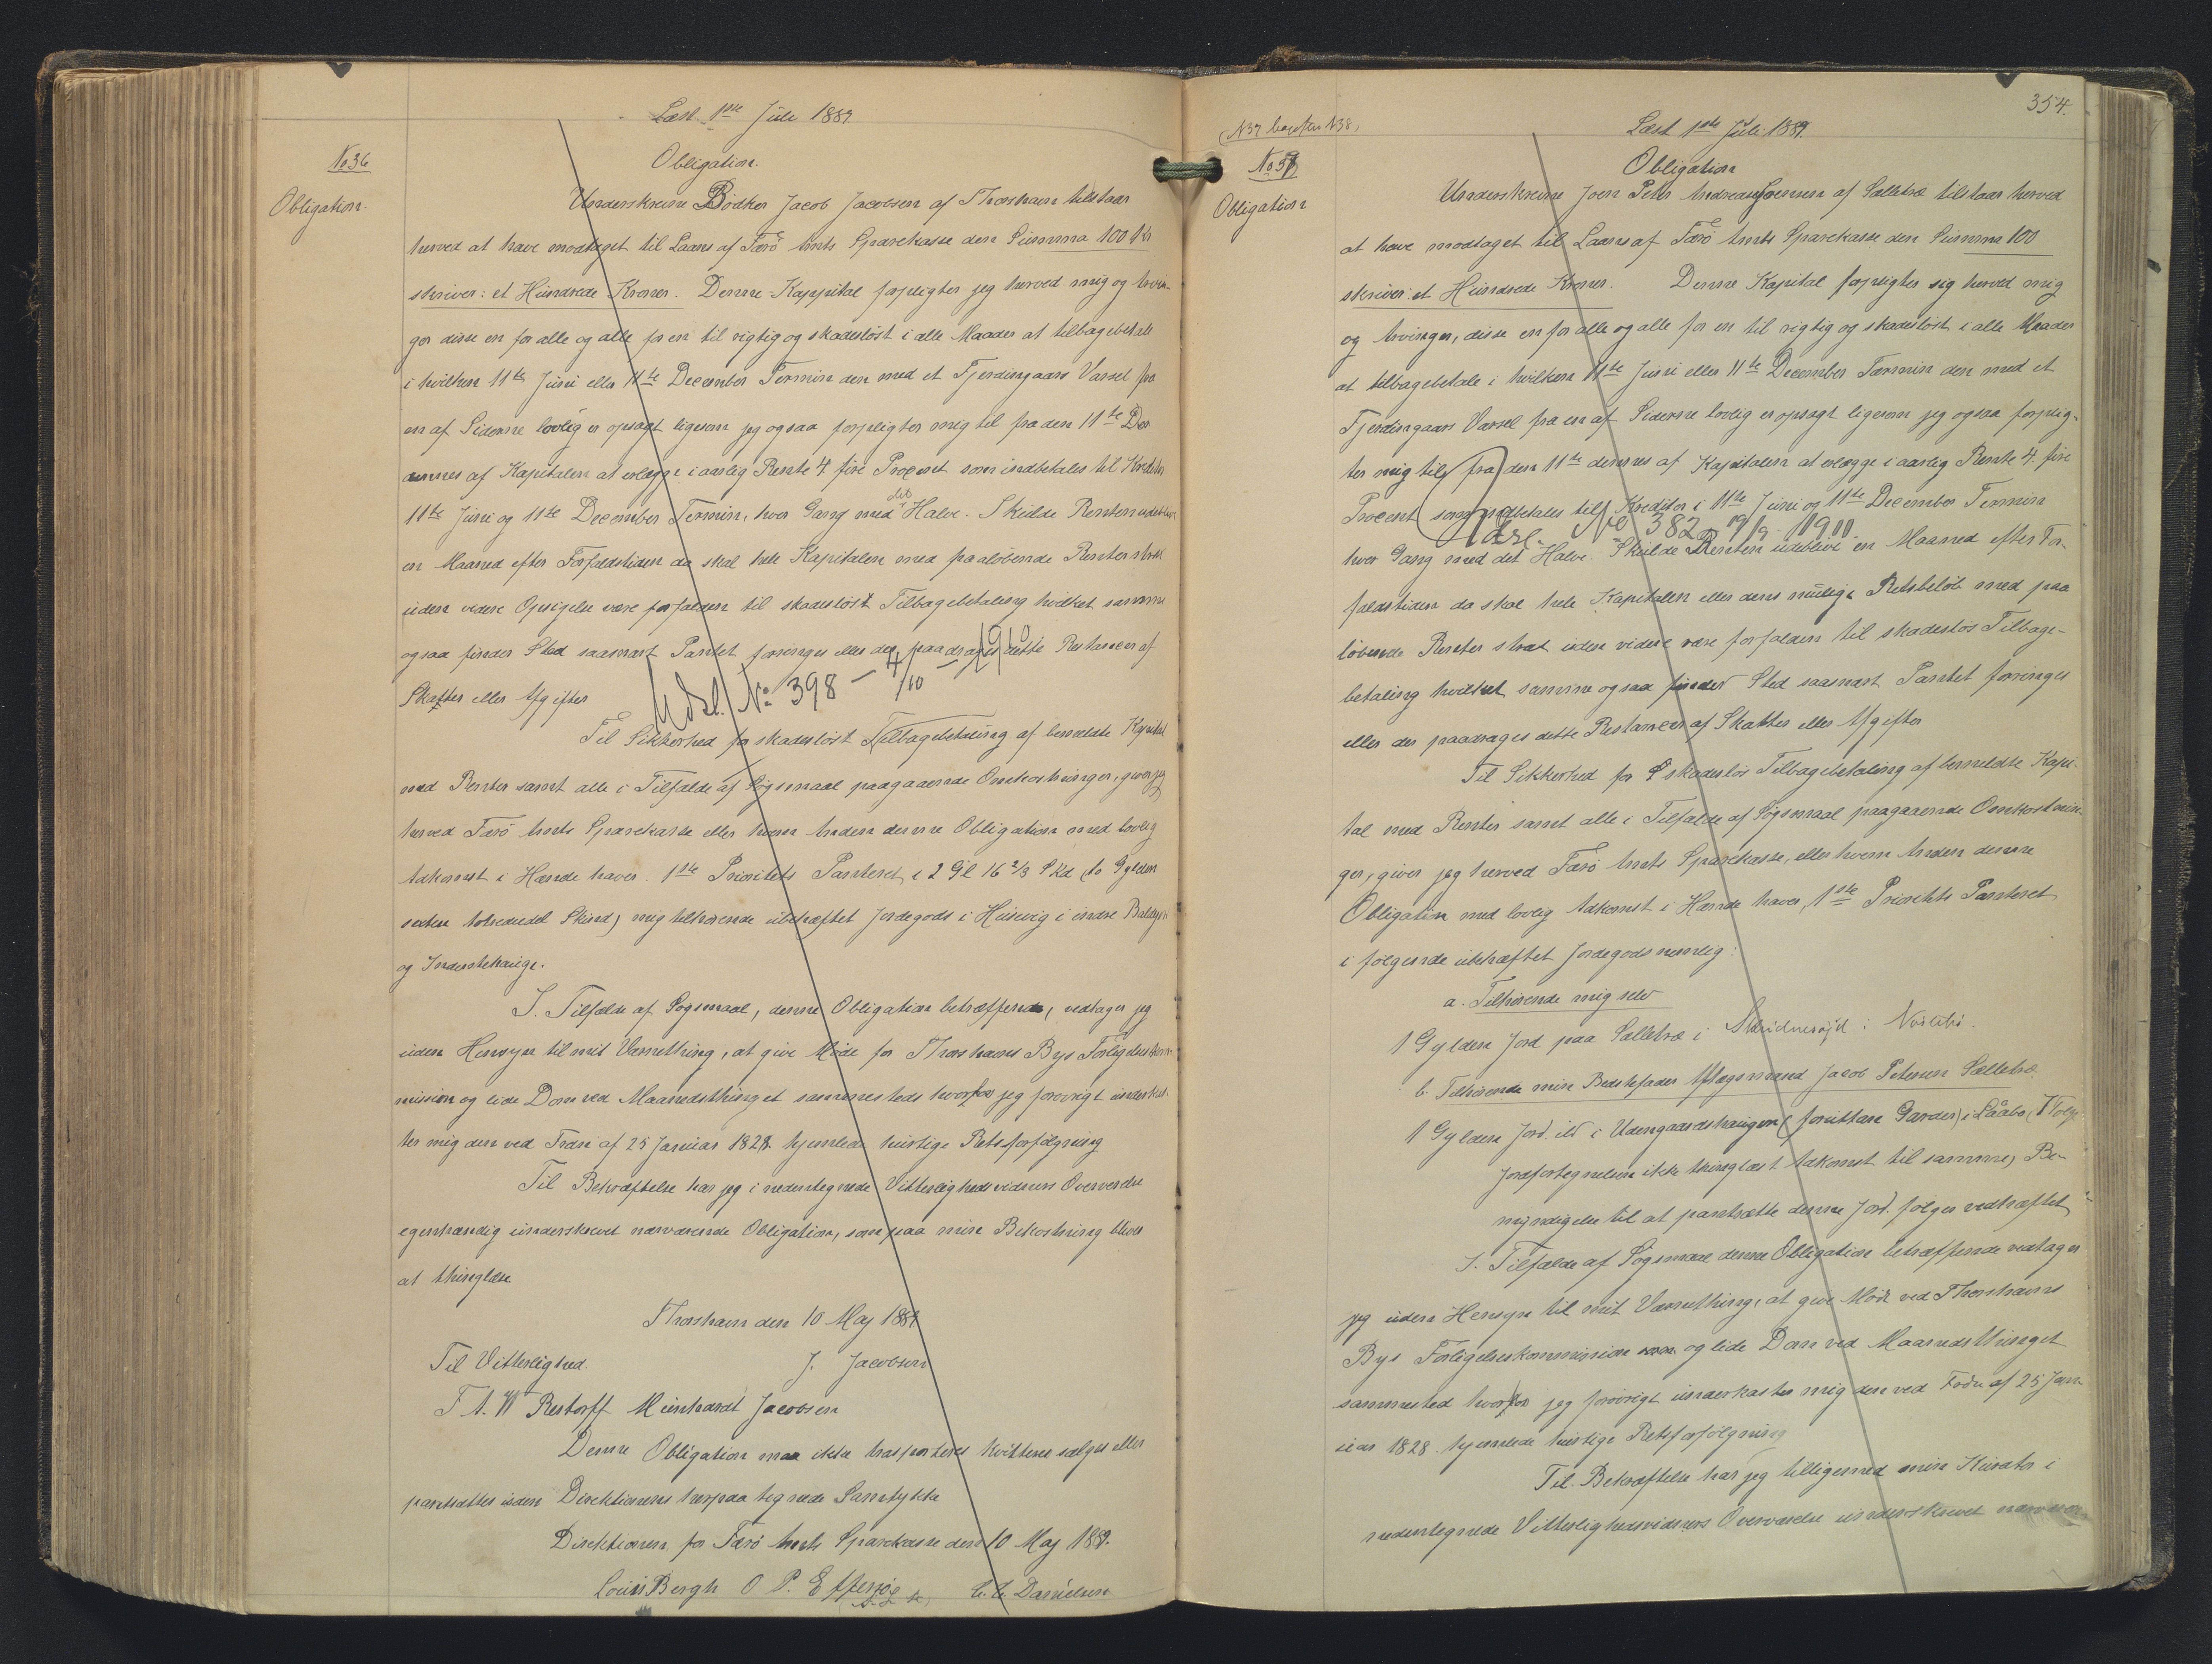 Læst 1ste Juli 1889.
No 36
Obligation.
Obligation.
Underskrevne Bödker Jacob Jacobsen af Thorshavn tilstaar
herved at have modtaget til Laans af Færö Amts Sparekasse den Summa 100 Kr
skriver: et Hundrede Kroner. Denne Kappital forpligter jeg herved mig og Arvin-
ger disse en for alle og alle for en til rigtig og skadeslöst i alle Maader at tilbagebetale
i hvilken 11te Juni eller 11te December Termin den med et Fjerdingaars Varsel fra
en af Siderne lovlig er opsagt ligesom jeg ogsaa forpligter mig til fra den 11te De
dennes af Kapitalen at erlægge i aarlig Rente 4 fire Procent som indbetales til Kreditor
11te Juni og 11te December Termin, hver Gang med det Halve. Skulde Renten udeblive
en Maaned efter Forfaldstiden da skal hele Kapitalen med paalöbende Renter strax
uden videre Opsigelse være forfalden til skadeslöst Tilbagebetaling hvilket samme
ogsaa finder Sted saasnart Pantet forringes eller der paadrages dette Restancer af
Skatter eller Afgifter
Udsl. No 398 - 4/10 - 1910
Til Sikkerhed for skadeslöst Tilbagebetaling af bemeldte Kapital
med Renter samt alle i Tilfælde af Sögsmaal paagaaende Omkostninger, giver jeg
herved Færö Amts Sparekasse eller hvem Anden denne Obligation med lovlig
Adkomst i Hænde haver. 1ste Prioritets Panteret i 2 Gl 16 2/3 Skd (to Gylden
sexten totrediedel Skind) mig tilhørende ubehæftet Jordegods i Husevig i indre
og Inderstehauge.
I Tilfælde af Sogsmaal, denne Obligation betræffende, vedtager jeg
uden Hensyn til mit Værnething, at give Möde for Thorshavns Bys Forligelseskom
mission og lide Dom ved Maanedsthinget sammesteds hvorfor jeg forövrigt underkas-
ter mig den ved Frdn af 25 Januar 1828 hjemlede hurtige Retsforfölgning
Til Bekræftelse har jeg i nedentegnede Vitterlighedsvidners Overværelse
egenhændig underskrevet nærværende Obligation, som paa min Bekostning bliver
at thinglæse
Thorshavn den 10 Maj 1889
Til Vitterlighed. J. Jacobsen
F A. W Restorff Meinhardt Jacobsen
Denne Obligation maa ikke transporteres kvitteres sælges eller
pantsættes uden Direktionens herpaa tegnede Samtykke
Direktionen for Færö Amts Sparekasse den 10 Maj 1889.
Louis Bergh O P. Effersöe C. C. Danielsen
354.
Læst 1ste Juli 1889.
(N37 bagefter N38)
No 37
Obligation
Obligation
Underskrevne Joen Peter Andreas Joensen af Salletræ tilstaar herved
at have modtaget til Laans af Færö Amts Sparekasse den Summa 100
skriver: et Hundrede Kroner. Denne Kapital forpligter sig herved mig
og Arvinger, disse en for alle og alle for en til rigtig og skadeslöst i alle Maader
at tilbagebetale i hvilken 11te Juni eller 11te December Termin den med et
Fjerdingaars Varsel fra en af Siderne lovlig er opsagt ligesom jeg ogsaa forplig-
ter mig til fra den 11te dennes af Kapitalen at erlægge i aarlig Rente 4 fire
Procent som indbetales til Kreditor i 11te Juni og 11te December Termin
Udsl. No 382 19/9 1911
hver Gang med det Halve. Skulde Renten udeblive en Maaned efter For-
faldstiden da skal hele Kapitalen eller dens mulige Restbelöb med paa
löbende Renter strax uden videre være forfalden til skadeslös Tilbage-
betaling hvilket samme ogsaa finder Sted saasnart Pantet forringes
eller der paadrages dette Restancer af Skatter eller Afgifter
Til Sikkerhed for skadeslös Tilbagebetaling af bemeldte Kapi-
tal med Renter samt alle i Tilfælde af Sögsmaal paagaaende Omkostnin-
ger, giver jeg herved Færö Amts Sparekasse, eller hvem Anden denne
Obligation med lovlig Adkomst i Hænde haver, 1ste Prioritets Panteret
i fölgende ubehæftet Jordegods nemlig:
a. Tilhörende mig selv
1 Gylden Jord paa Salletræ i
b. Tilhörende min Bedstefader Aftægtsmand Jacob Petersen Salletræ
1 Gylden Jord. i Udengaardshaugen (foruttan Garder) i
Jordfortegnelsen ikke thinglæst Adkomst til samme, Be-
myndigelse til at pantsætte denne Jord fölger vedhæftet
I Tilfælde af Sögsmaal denne Obligation betræffende vedtager
jeg uden Hensyn til mit Værnething, at give Möde ved Thorshavns
Bys Forligelseskommission og lide Dom ved Maanedsthinget
sammested hvorfor jeg forövrigt underkaster mig den ved Frdn af 25 Jan-
uar 1828 hjemlede hurtige Retsforfölgning
Til Bekræftelse har jeg tilligemed min Kurator i
nedentegnede Vitterlighedsvidners Overværelse underskrevet nærvær